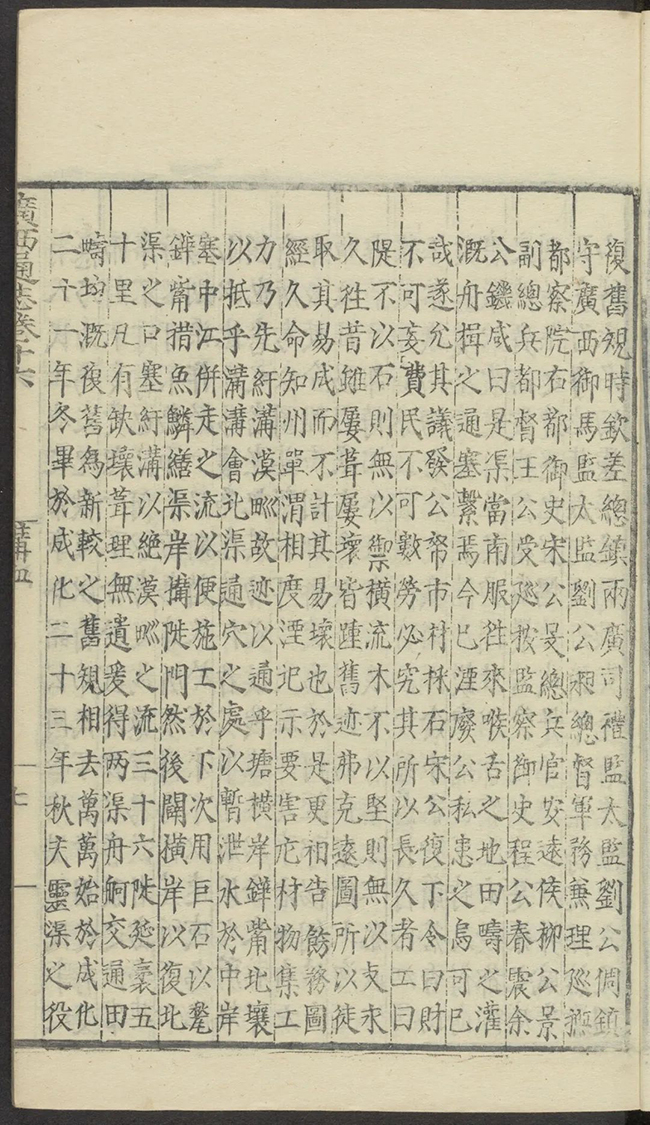 復舊規時欽差總鎮兩廣司禮監太監劉公倜鎮
守廣西御馬監太監劉公昶總督軍務兼理巡撫
都察院右都御史宋公旻總兵官安遠侯柳公景
副總兵都督王公受巡按監察御史程公春震余
公鐖咸曰是渠當南服往來喉舌之地田疇之灌
溉舟楫之通塞繫焉今已湮廢公私患之烏可已
哉遂允其議發公帑市材採石宋公復下令曰財
不可妄費民不可數勞必究其所以長久者工曰
隄不以石則無以禦橫流木不以堅則無以支永
久往昔雖屢葺屢壞皆踵舊迹弗克遠圖所以徒
取其易成而不計其易壞也於是更相告飭務圖
經久命知州單渭相度湮圯示要害庀材物集工
力乃先紆溝漠巛故迹以通乎塘橫岸鏵觜北壤
以抵乎溝溝會北渠通穴之處以暫泄水於中岸
塞中江併走之流以便施工於下次用巨石以甃
鏵觜措魚鱗繕渠岸搆陡門然後閘橫岸以復北
渠之口塞紆溝以絕漠巛之流三十六陡延袤五
十里凡有缺壞葺理無遺爰得兩渠舟舸交通田
疇均溉復舊爲新較之舊規相去萬萬始於成化
二十一年冬畢於成化二十三年秋夫靈渠之役
廣西通志卷十六
七